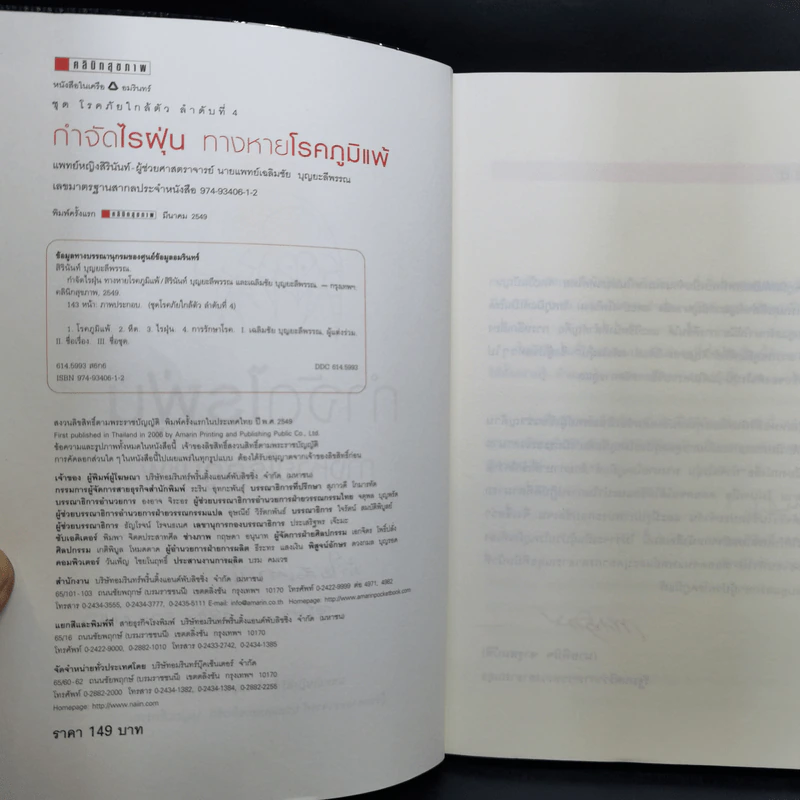 คลินิกสุขภาพ
หนังสือในเครือ อมรินทร์
ชุด โรคภัยใกล้ตัว ลำดับที่ 4
กำจัดไรฝุ่น ทางหายโรคภูมิแพ้
แพทย์หญิงสิรินันท์-ผู้ช่วยศาสตราจารย์ นายแพทย์เฉลิมชัย บุญยะลีพรรณ
เลขมาตรฐานสากลประจำหนังสือ 974-93406-1-2
พิมพ์ครั้งแรก คลินิกสุขภาพ มีนาคม 2549
ข้อมูลทางบรรณานุกรมของศูนย์ข้อมูลอมรินทร์
สิรินันท์ บุญยะลีพรรณ.
กำจัดไรฝุ่น ทางหายโรคภูมิแพ้/สิรินันท์ บุญยะลีพรรณ และเฉลิมชัย บุญยะลีพรรณ. — กรุงเทพฯ
คลินิกสุขภาพ, 2549.
143 หน้า: ภาพประกอบ (ชุดโรคภัยใกล้ตัว ลำดับที่ 4)
1. โรคภูมิแพ้. 2. หืด. 3. ไรฝุ่น. 4. การรักษาโรค. I. เฉลิมชัย บุญยะลีพรรณ, ผู้แต่งร่วม.
II. ชื่อเรื่อง. III. ชื่อชุด.
614.5993 ส6ก6 DDC 614.5993
ISBN 974-93406-1-2
สงวนลิขสิทธิ์ตามพระราชบัญญัติ พิมพ์ครั้งแรกในประเทศไทย ปี พ.ศ. 2549
First published in Thailand in 2006 by Amarin Printing and Publishing Public Co., Ltd.
ข้อความและรูปภาพทั้งหมดในหนังสือนี้ เจ้าของลิขสิทธิ์สงวนสิทธิ์ตามพระราชบัญญัติ
การคัดลอกส่วนใด ๆ ในหนังสือนี้ไปเผยแพร่ในทุกรูปแบบ ต้องได้รับอนุญาตจากเจ้าของลิขสิทธิ์ก่อน
เจ้าของ ผู้พิมพ์ผู้โฆษณา บริษัทอมรินทร์พริ้นติ้งแอนด์พับลิชชิ่ง จำกัด (มหาชน)
กรรมการผู้จัดการสายธุรกิจสำนักพิมพ์ ระริน อุทกะพันธุ์ บรรณาธิการที่ปรึกษา สุภาวดี โกมารทัต
บรรณาธิการอำนวยการ องอาจ จิระอร ผู้ช่วยบรรณาธิการอำนวยการฝ่ายวรรณกรรมไทย จตุพล บุญพรัด
ผู้ช่วยบรรณาธิการอำนวยการฝ่ายวรรณกรรมแปล อุษณีย์ วิรัตกพันธ์ บรรณาธิการ ไจรัตน์ สมบัติพิบูลย์
ผู้ช่วยบรรณาธิการ ธัญโรจน์ โรจนธเนศ เลขานุการกองบรรณาธิการ ประเสริฐพร เจ๊ะมะ
ซับเอดิเตอร์ พิมพา จิตตประสาทศีล ช่างภาพ กฤษดา อนุนาท ผู้จัดการฝ่ายศิลปกรรม เอกจิตร โพธิ์ปลั่ง
ศิลปกรรม เกติพิบูล ไหมตตาด ผู้อำนวยการฝ่ายการผลิต ธีระพร แสงเงิน พิสูจน์อักษร ดวงกมล บุญรอด
คอมพิวเตอร์ วันเพ็ญ ไชยวันฤทธิ์ ประสานงานการผลิต บรม คมเวช
สำนักงาน บริษัทอมรินทร์พริ้นติ้งแอนด์พับลิชชิ่ง จำกัด (มหาชน)
65/101-103 ถนนชัยพฤกษ์ (บรมราชชนนี) เขตตลิ่งชัน กรุงเทพฯ 10170 โทรศัพท์ 0-2422-9999 ต่อ 4971, 4982
โทรสาร 0-2434-3555, 0-2434-3777, 0-2435-5111 E-mail: info@amarin.co.th Homepage: http://www.amarinpocketbook.com
แยกสีและพิมพ์ที่ สายธุรกิจโรงพิมพ์ บริษัทอมรินทร์พริ้นติ้งแอนด์พับลิชชิ่ง จำกัด (มหาชน)
65/16 ถนนชัยพฤกษ์ (บรมราชชนนี) เขตตลิ่งชัน กรุงเทพฯ 10170
โทรศัพท์ 0-2422-9000, 0-2882-1010 โทรสาร 0-2433-2742, 0-2434-1385
จัดจำหน่ายทั่วประเทศโดย บริษัทอมรินทร์บุ๊คเซ็นเตอร์ จำกัด
65/60-62 ถนนชัยพฤกษ์ (บรมราชชนนี) เขตตลิ่งชัน กรุงเทพฯ 10170
โทรศัพท์ 0-2882-2000 โทรสาร 0-2434-1382, 0-2434-1384, 0-2882-2256
Homepage: http://www.naiin.com
ราคา 149 บาท